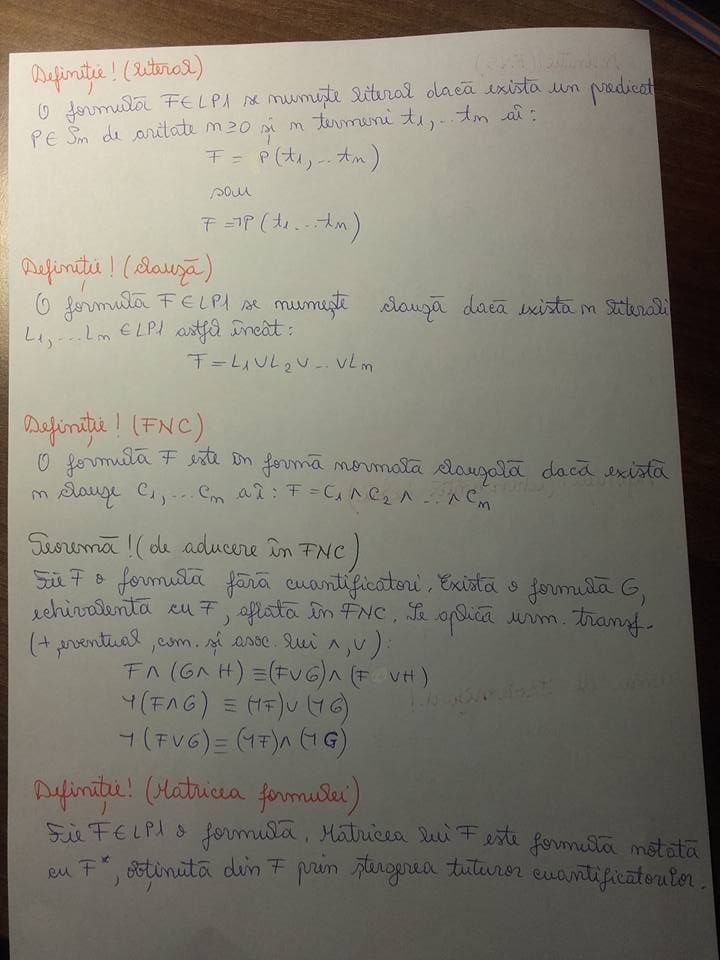 Definiție! (literal)
O formulă F∈LP1 se numește literal dacă există un predicat
P∈Pn de aritate n≥0 și n termeni t1,...tn aî:
F = P(t1,...tn)
sau
F=¬P(t1...tn)
Definiție! (clauză)
O formulă F∈LP1 se numește clauză dacă există n literali
L1,...Ln∈LP1 astfel încât:
F=L1∨L2∨...∨Ln
Definiție! (FNC)
O formulă F este în formă normală clauzală dacă există
n clauze C1,...Cn aî: F=C1∧C2∧...∧Cn
Teoremă! (de aducere în FNC)
Fie F o formulă fără cuantificatori. Există o formulă G,
echivalentă cu F, aflată în FNC. Se aplică urm. transf.
(+, eventual, com. și asoc. lui ∧,∨):
F∧(G∧H)≡(F∨G)∧(F∨H)
¬(F∧G)≡(¬F)∨(¬G)
¬(F∨G)≡(¬F)∧(¬G)
Definiție! (Matricea formulei)
Fie F∈LP1 o formulă. Matricea lui F este formula notată
cu F*, obținută din F prin ștergerea tuturor cuantificatorilor.